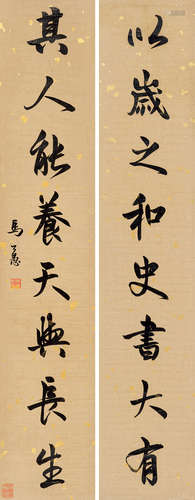 以歲之和史書大有
其人能養天與長生
馬一